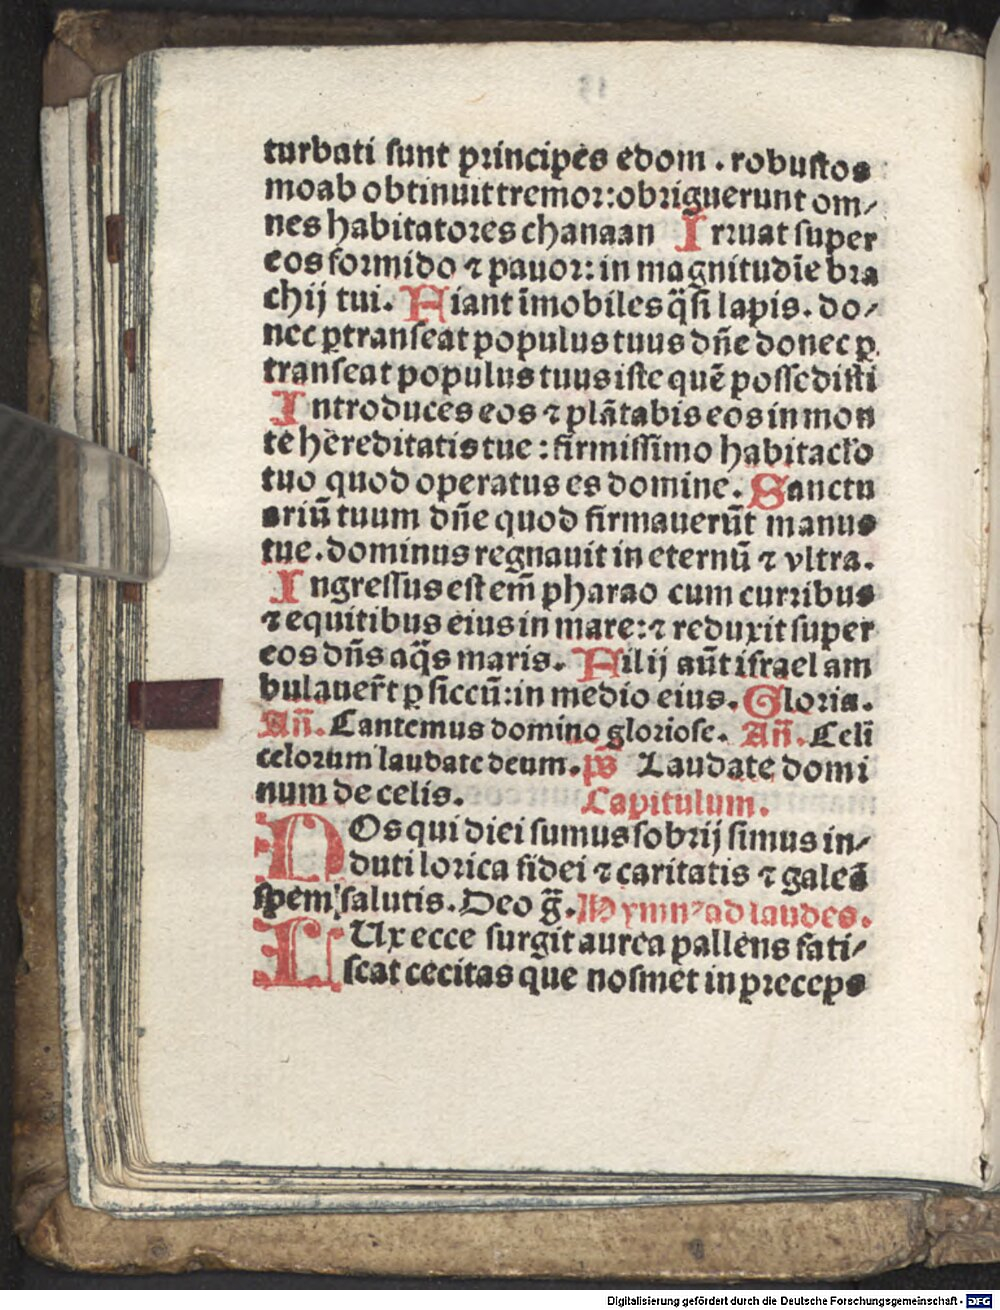 turbati sunt principes edom . robustos
moab obtinuit tremor: obriguerunt om⸗
nes habitatores chanaan Irruat super
eos formido ⁊ pauor: in magnitudīe bra
chij tui. Fiant īmobiles q̄si lapis. do⸗
nec ꝑtranseat populus tuus dñe donec ꝑ
transeat populus tuus iste quē possedisti
Introduces eos ⁊ plātabis eos in mon
te hereditatis tue : firmissimo habitaclo
tuo quod operatus es domine. Sanctu
ariū tuum dñe quod firmauerūt manus
tue. dominus regnauit in eternū ⁊ vltra.
Ingressus est em̄ pharao cum curribus
⁊ equitibus eius in mare: ⁊ reduxit super
eos dñs aq̄s maris. Filij aūt israel am
bulauer̄t ꝑ siccū: in medio eius. Gloria.
Añ. Cantemus domino gloriose. Añ. Celi
celorum laudate deum. ps̄ Laudate domi
num de celis. Capitulum.
NOs qui diei sumus sobrij simus in⸗
duti lorica fidei ⁊ caritatis ⁊ galeā
spem salutis. Deo ḡ. Hymnꝰ ad laudes.
LUx ecce surgit aurea pallens fati⸗
scat cecitas que nosmet in preceps
Digitalisierung gefördert durch die Deutsche Forschungsgemeinschaft - DFG